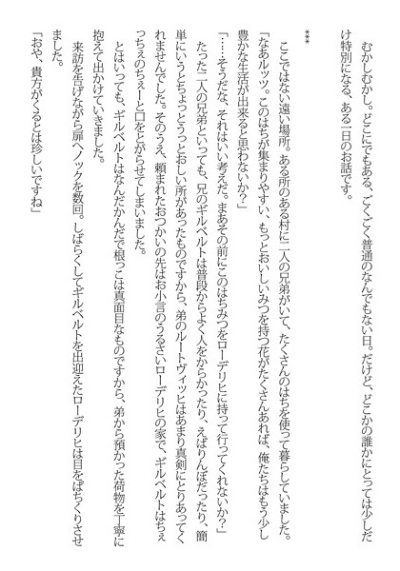 むかしむかし。どこにでもある、ごくごく普通のなんでもない日。だけど、どこかの誰かにとっては少しだ
け特別になる、ある一日のお話です。
***
ここではない遠い場所。ある所のある村に二人の兄弟がいて、たくさんのはちを使って暮らしていました。
「なあルッツ。このはちが集まりやすい、もっとおいしいみつを持つ花がたくさんあれば、俺たちはもう少し
豊かな生活が出来ると思わないか?」
「……そうだな、それはいい考えだ。まあその前にこのはちみつをローデリヒに持って行ってくれないか?」
たった二人の兄弟といっても、兄のギルベルトは普段からよく人をからかったり、えばりんぼだったり、簡
単にいうとちょっとうっとおしい所があったものですから、弟のルートヴィッヒはあまり真剣にとりあってく
れませんでした。そのうえ、頼まれたおつかいの先はお小言のうるさいローデリヒの家で、ギルベルトはちぇ
っちぇのちぇーと口をとがらせてしまいました。
とはいっても、ギルベルトはなんだかんだで根っこは真面目なものですから、弟から預かった荷物を丁寧に
抱えて出かけていきました。
来訪を告げながら扉へノックを数回。しばらくしてギルベルトを出迎えたローデリヒは目をぱちくりさせ
ました。
「おや、貴方がくるとは珍しいですね」